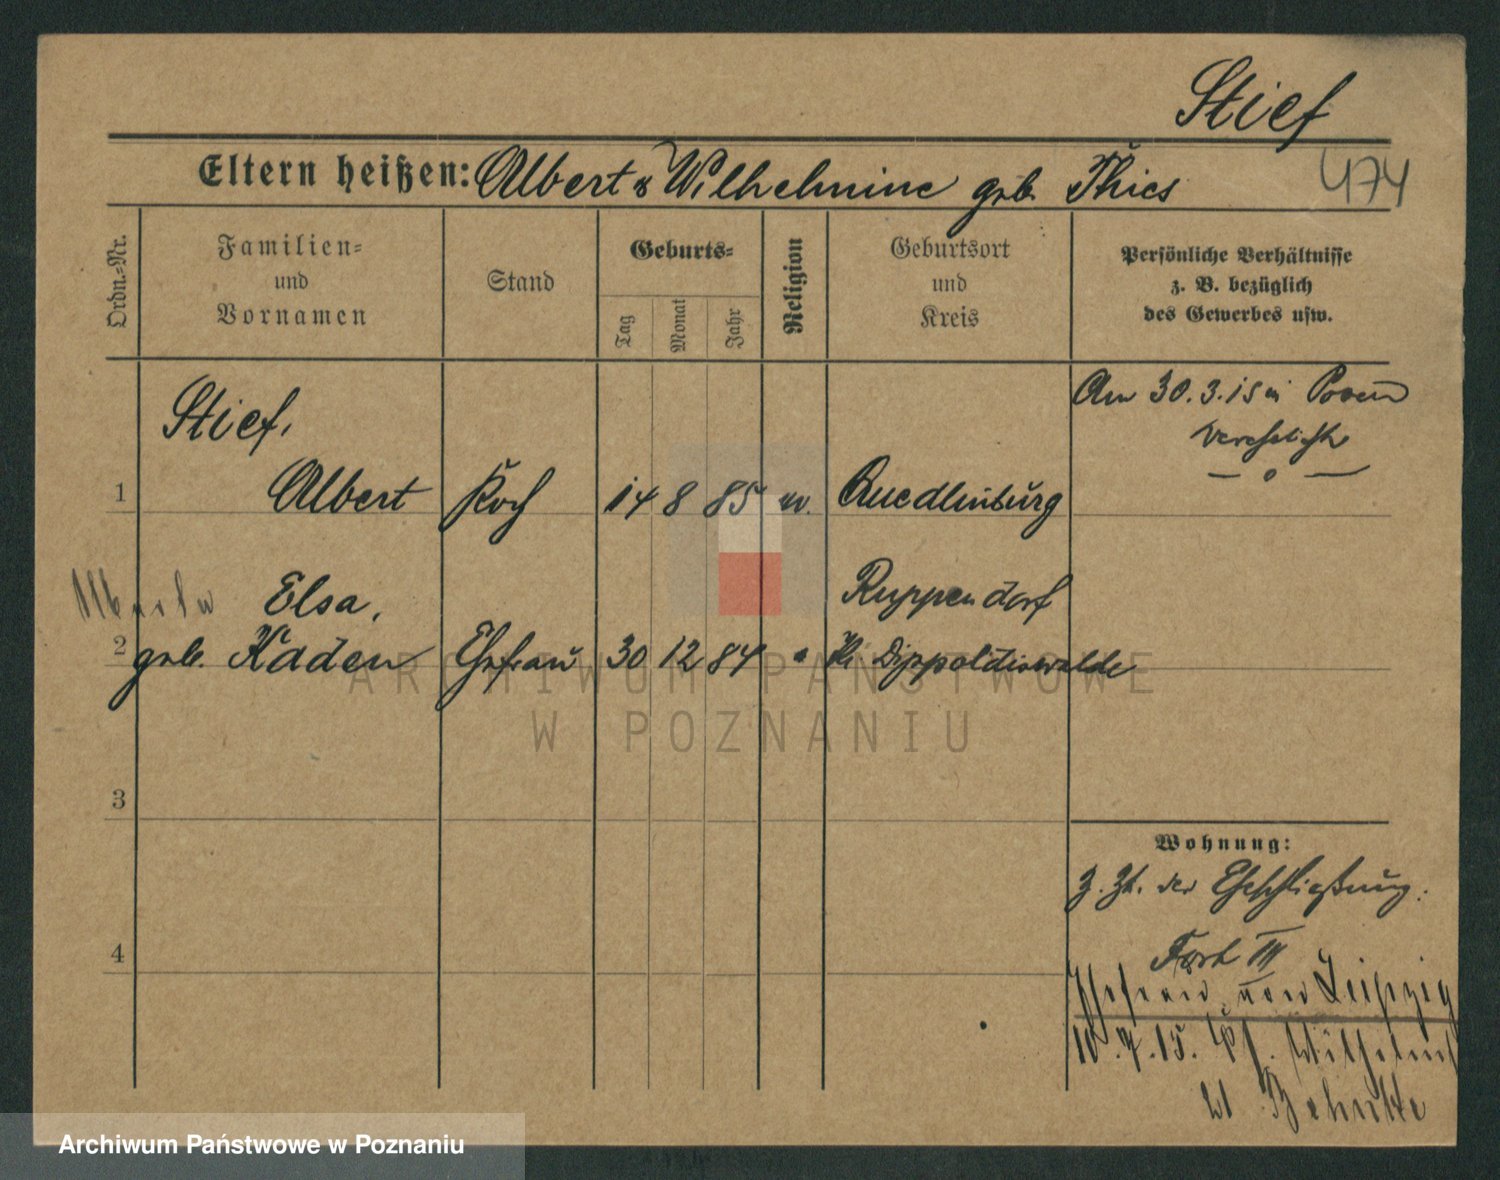 Stief
474
Eltern heißen: Albert & Wilhelmine geb. Thies
Ordn.-Nr.
Familien-
und
Vornamen
Stand
Geburts-
Tag
Monat
Jahr
Religion
Geburtsort
und
Kreis
Persönliche Verhältnisse
z. B. bezüglich
des Gewerbes usw.
Am 30.3.15 in Posen
verehelicht
Stief,
1 Albert Koch 14 8 85 ev. Quedlinburg
Elsa, Ruppendorf
2 geb. Kaden Ehefrau 30 12 84 " Kr. Dippoldiswalde
3
4
Wohnung:
z. Zt. der Eheschließung:
Fort III
Ehefrau von Leipzig
10.7.15. Wilhelm
21 Behnke
ARCHIWUM PAŃSTWOWE
W POZNANIU
Archiwum Państwowe w Poznaniu